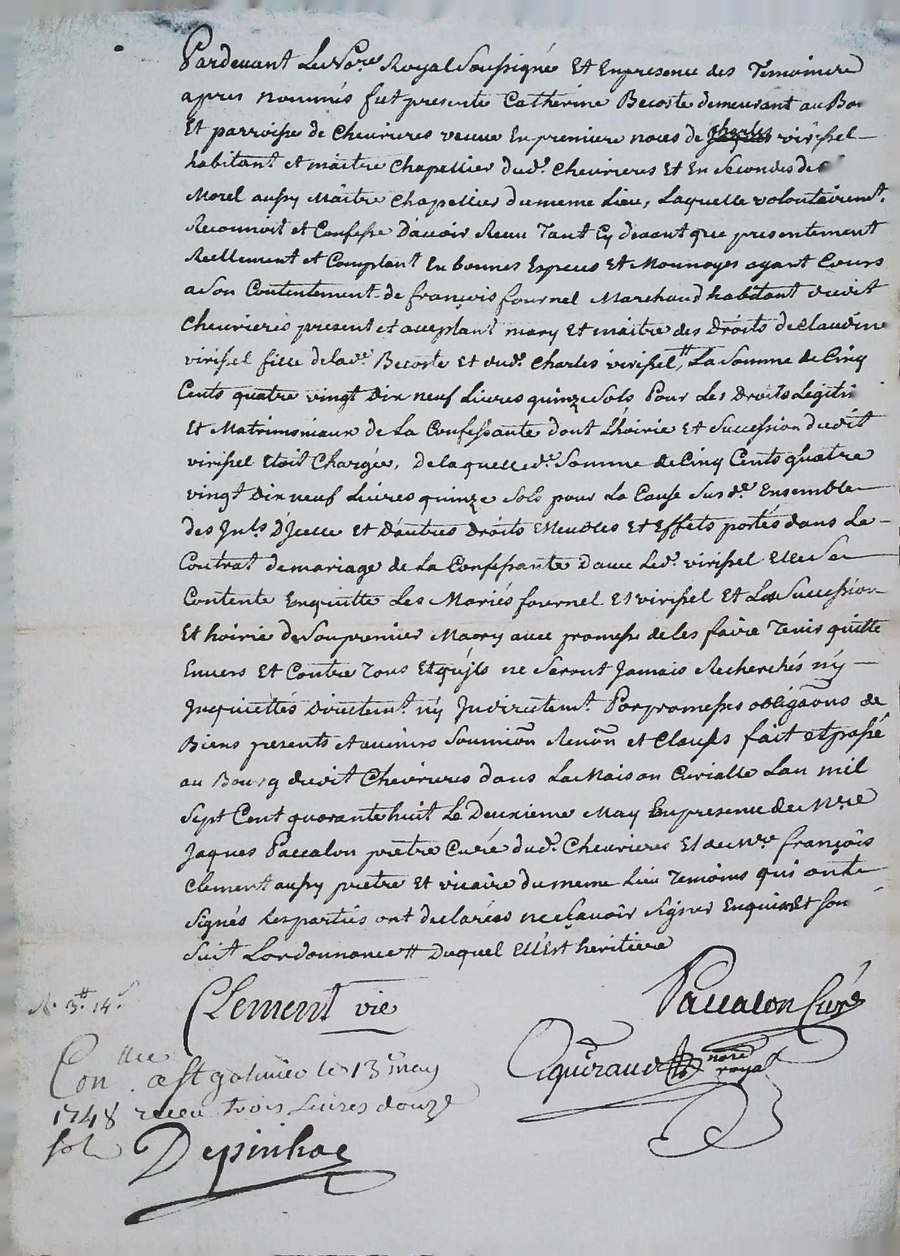 Pardevant Le No.re Royal Soussigné Et Enpresence des Temoins
apres nommés fut presente Catherine Becoste demeurant au Bou
Et parroisse de Chevrieres veuve Enpremiere noces de charles virissel
habitant et maitre Chapellier dud.t Chevrieres Et En Secondes de
Morel aussy Maitre Chapellier du meme Lieu, Laquelle volontairem.t
Reconnoit et Confesse D'avoir Receu Tant Cy devant que presentement
Reellement et Comptant En bonnes Especes Et Monnoyes ayant Cours
a Son Contentement de françois fournel Marchand habitant dudit
Chevrieres present et acceptant mary Et maitre des Droits de Claudine
virissel fille de lad.e Becoste et dud.t Charles virissel #, La Somme de Cinq
Cents quatre vingt Dix neuf Livres quinze Sols Pour Les Droits Legitti
Et Matrimoniaux de La Confessante dont L'hoirie Et Succession dudit
virissel Etoit Chargée, De laquelle d.e Somme de Cinq Cents quatre
vingt Dix neuf Livres quinze Sols pour La Cause Sus d.e Ensemble
des Jnts D'Jcelle et D'autres Droits Meubles Et Effets portés dans Le
Contrat de mariage de La Confessante Davec Led.t virissel Elle Se
Contente Enquitte Les Mariés fournel Et virissel Et La Succession
Et hoirie de Son premier Mary avec promesse de les faire Tenir quitte
Envers Et Contre Tous Et qu'jls ne Seront Jamais Recherchés n'y
Jnquiettés Directem.t n'y Jndirectem.t Par promesses obligaōns de
Biens presents et avenirs Soumiōn Renōn et Clauses fait et passé
au Bourg dudit Chevrieres dans La Maison Curialle L'an mil
Sept Cent quarante huit Le Deuxieme May En presence de M.re
Jaques Paccalon prêtre Curé dud.t Chevrieres Et de M.re françois
Clement aussy prêtre Et vicaire du meme Lieu Temoins qui ont
Signés Les parties ont declarées ne Scavoir Signer Enquises Et Son
Suit L'ordonnance # Duquel Ell'Est heritiere
R. 3# 14.s
Clement vic
Paccalon Curé
Con.llee a St galmier le 13 may
no.re royal
1748 receu trois Livres douze
sols
Depinhac